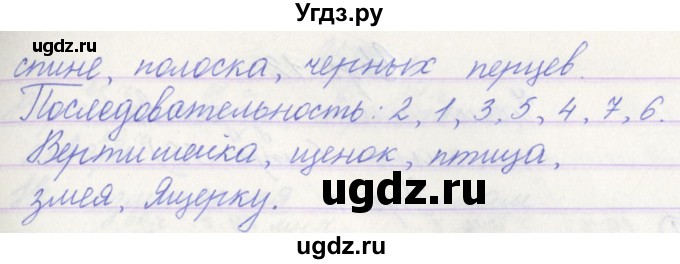 Угдз.ру
ugdz.ru
ugdz.ru
спине, полоска, черных перцев.
Последовательность: 2, 1, 3, 5, 4, 7, 6.
Вертишейка, щенок, птица,
ugdz.ru
змея, ящерку.
ugdz.ru
ugdz.ru